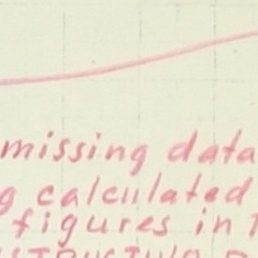 missing data
g calculated
figures in